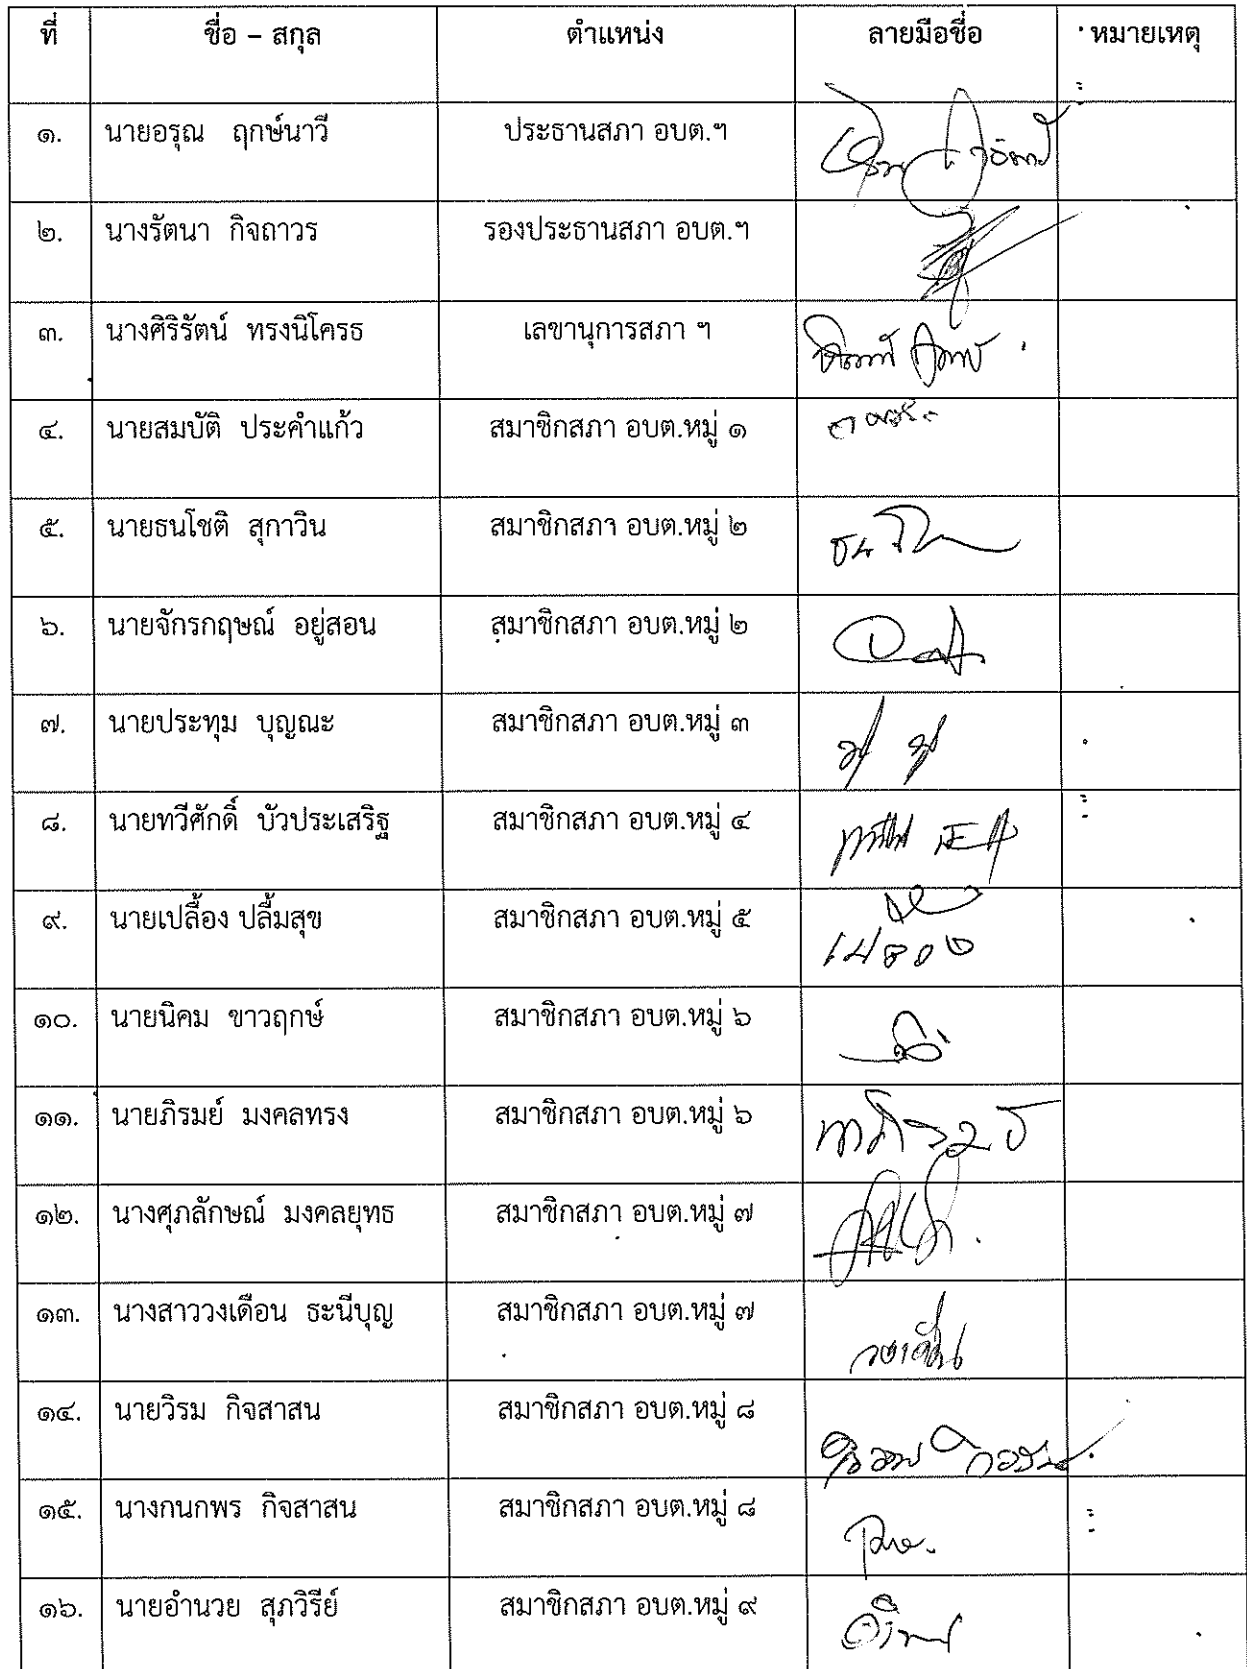 ที่ ชื่อ – สกุล ตำแหน่ง ลายมือชื่อ หมายเหตุ
๑. นายอรุณ ฤกษ์นาวี ประธานสภา อบต.ฯ
๒. นางรัตนา กิจถาวร รองประธานสภา อบต.ฯ
๓. นางศิริรัตน์ ทรงนิโครธ เลขานุการสภา ฯ
๔. นายสมบัติ ประคำแก้ว สมาชิกสภา อบต.หมู่ ๑
๕. นายธนโชติ สุกาวิน สมาชิกสภา อบต.หมู่ ๒
๖. นายจักรกฤษณ์ อยู่สอน สมาชิกสภา อบต.หมู่ ๒
๗. นายประทุม บุญณะ สมาชิกสภา อบต.หมู่ ๓
๘. นายทวีศักดิ์ บัวประเสริฐ สมาชิกสภา อบต.หมู่ ๔
๙. นายเปลื้อง ปลื้มสุข สมาชิกสภา อบต.หมู่ ๕
๑๐. นายนิคม ขาวฤกษ์ สมาชิกสภา อบต.หมู่ ๖
๑๑. นายภิรมย์ มงคลทรง สมาชิกสภา อบต.หมู่ ๖
๑๒. นางศุภลักษณ์ มงคลยุทธ สมาชิกสภา อบต.หมู่ ๗
๑๓. นางสาววงเดือน ธะนีบุญ สมาชิกสภา อบต.หมู่ ๗
๑๔. นายวิรม กิจสาสน สมาชิกสภา อบต.หมู่ ๘
๑๕. นางกนกพร กิจสาสน สมาชิกสภา อบต.หมู่ ๘
๑๖. นายอำนวย สุภวิรีย์ สมาชิกสภา อบต.หมู่ ๙